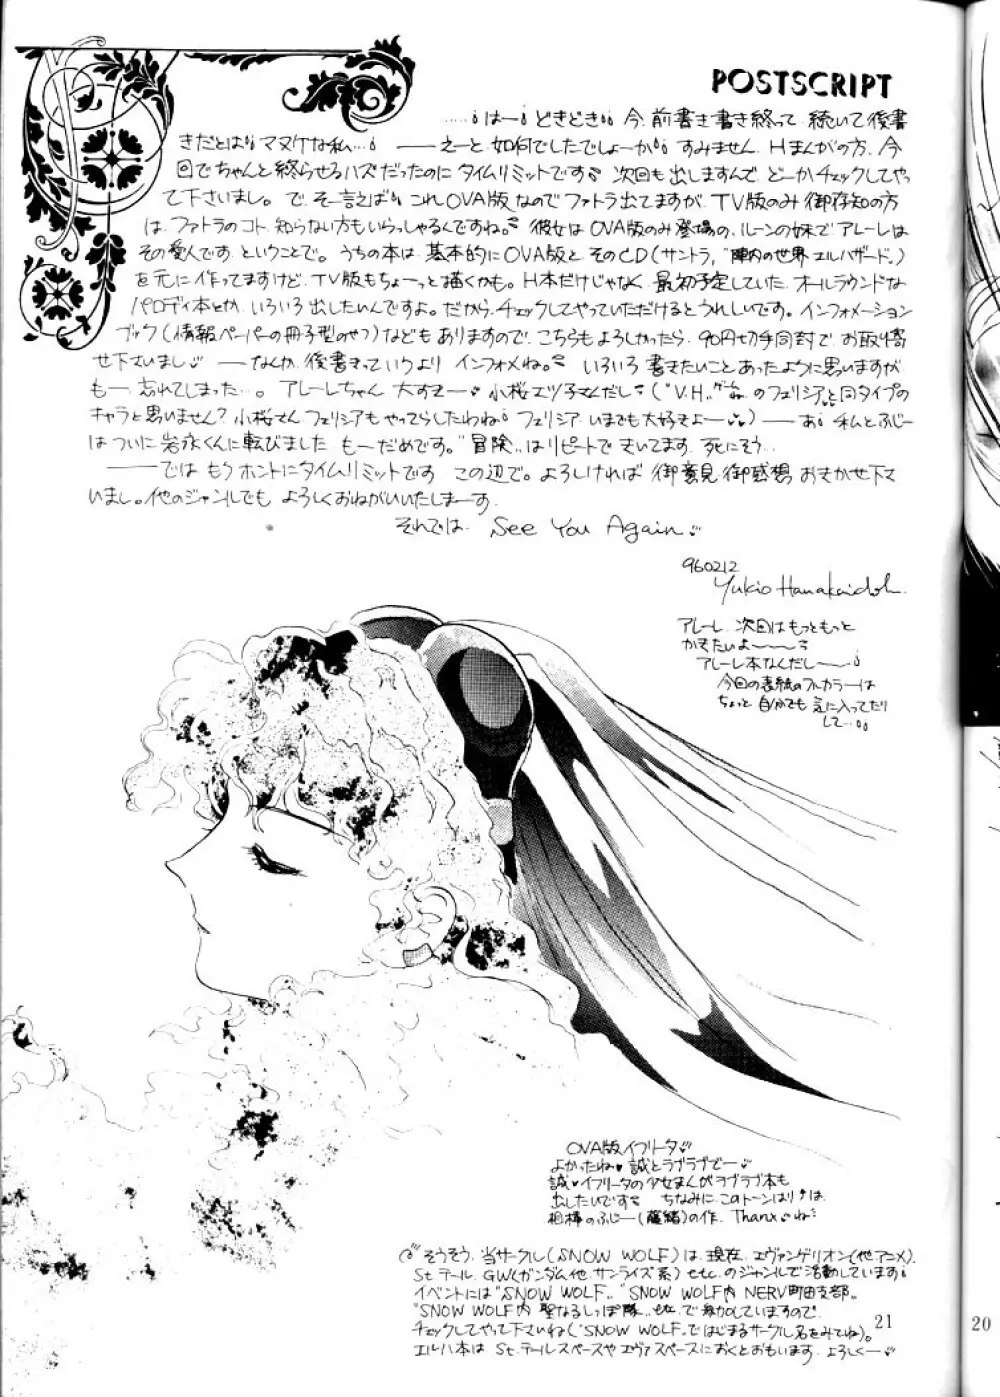 POSTSCRIPT
……はーどきどき 今、前書き書き終って、続いて後書
きだとは マヌケな私… ──えーと、如何でしたでしょーか すみません、Hまんがの方、今
回でちゃんと終らせるハズだったのに タイムリミットです 次回も出しますんで、どーかチェックしてやっ
て下さいまし。で、そー言えば これOVA版なのでファトラ出てますが、TV版のみ御存知の方
は、ファトラのコト、知らない方もいらっしゃるんですね。彼女はOVA版のみ登場の、ルーンの妹で アレーレは
その愛人です ということで。うちの本は、基本的にOVA版と そのCD(サントラ、"陣内の世界 エルハザード„)
を元に作ってますけど、TV版もちょーっと描くかも。H本だけじゃなく、最初予定していた、オールラウンドな
パロディ本とか、いろいろ出したいんですよ。だから、チェックしてやっていただけるとうれしいです。インフォメーション
ブック(情報ペーパーの冊子型のやつ)などもありますので、こちらもよろしかったら、90円切手同封で、お取り寄
せ下さいまし ──なんか、後書きっていうより インフォメね。 いろいろ書きたいことあったように思いますが
もー忘れてしまった…。アレーレちゃん 大すきー 小桜エツ子さんだし ("V.H„ゲームのフェリシアと同タイプの
キャラと思いません?小桜さん、フェリシアもやってらしたわね フェリシア いまでも大好きよー)──あ 私とふじー
はついに岩永くんに転びました もーだめです。"冒険„はリピートできいてます、死にそう…
──では もうホントにタイムリミットです この辺で。よろしければ 御意見、御感想、おきかせ下さ
いまし。他のジャンルでも よろしくおねがいいたしまーす。
それでは、See You Again
960212
Yukio Hanakaidoh.
アレーレ、次回はもっともっと
かきたいよ───
アレーレ本なんだし──
今回の表紙のフルカラーは
ちょっと自分でも気に入ってたり
して…
OVA版イフリータ
よかったね♥誠とラブラブでー
誠♥イフリータの少女まんがラブラブ本も
出したいです ちなみに、このトーンはりは、
相棒のふじー(藤緒)の作、Thanx ね
そうそう、当サークル(SNOW WOLF)は、現在、エヴァンゲリオン(他アニメ)、
St.テール、GW(ガンダム他、サンライズ系)etc.のジャンルで活動しています
イベントには"SNOW WOLF„ "SNOW WOLF内 NERV町田支部„
"SNOW WOLF内 聖なるしっぽ隊„ etc.で参加していますので
チェックしてやって下さいね("SNOW WOLF„ではじまるサークル名をみてね)。
エルハ本は St.テールスペースやエヴァスペースにおくとおもいます、よろしくー
21
20